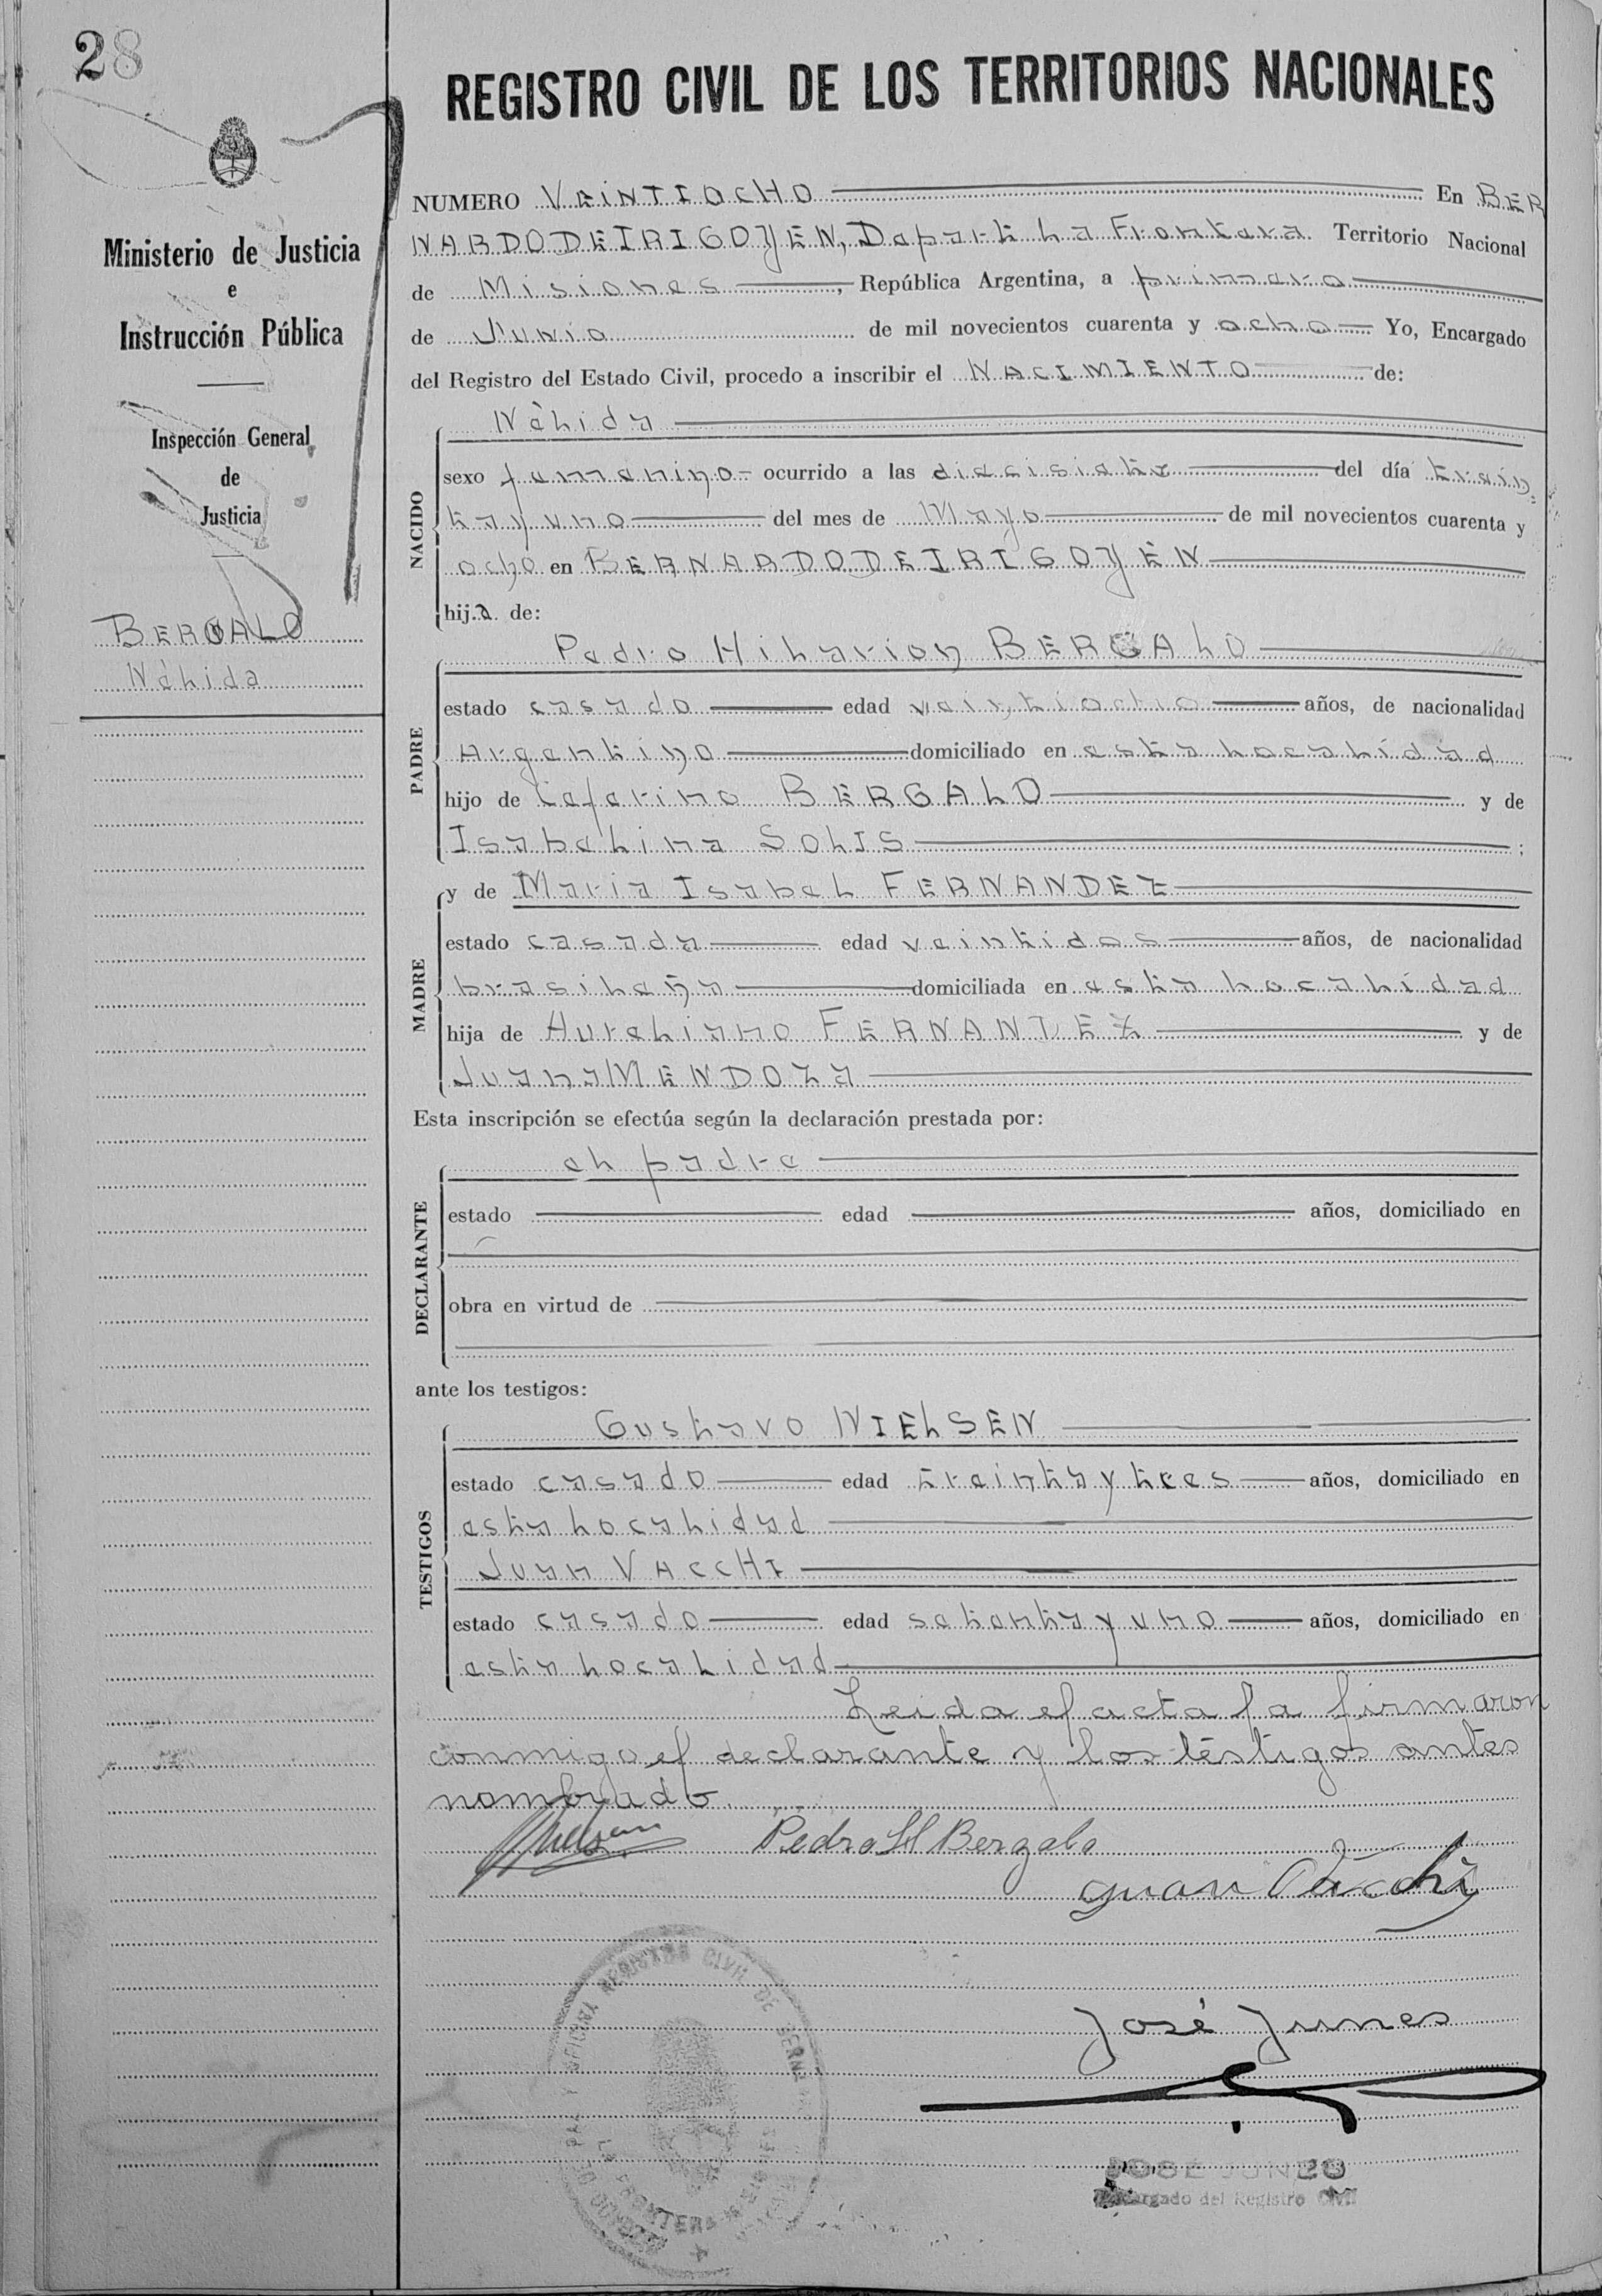 28
REGISTRO CIVIL DE LOS TERRITORIOS NACIONALES
Ministerio de Justicia
e
Instrucción Pública
Inspección General
de
Justicia
BERGALO
Nélida
NUMERO VEINTIOCHO En BER
NARDO DE IRIGOYEN, Depart. La Frontera Territorio Nacional
de Misiones, República Argentina, a primero
de Junio de mil novecientos cuarenta y ocho Yo, Encargado
del Registro del Estado Civil, procedo a inscribir el NACIMIENTO de:
NACIDO
Nélida
sexo femenino ocurrido a las diecisiete del día trein=
ta y uno del mes de Mayo de mil novecientos cuarenta y
ocho en BERNARDO DE IRIGOYEN
hija de:
PADRE
Pedro Hilarion BERGALO
estado casado edad veintiocho años, de nacionalidad
Argentino domiciliado en esta localidad
hijo de Ceferino BERGALO y de
Isabelina SOLIS ;
MADRE
y de Maria Isabel FERNANDEZ
estado casada edad veintidos años, de nacionalidad
brasileña domiciliada en esta localidad
hija de Aureliano FERNANDEZ y de
Juana MENDOZA
Esta inscripción se efectúa según la declaración prestada por:
DECLARANTE
el padre
estado edad años, domiciliado en
obra en virtud de
ante los testigos:
TESTIGOS
Gustavo NIELSEN
estado casado edad treinta y tres años, domiciliado en
esta localidad
Juan VACCHI
estado casado edad setenta y uno años, domiciliado en
esta localidad
Leida el acta la firmaron
conmigo el declarante y los testigos antes
nombrado
Nielsen Pedro H Bergalo
Juan Vacchi
OFICINA REGISTRO CIVIL DE BERNARDO DE IRIGOYEN
LA FRONTERA
José Junes
JOSÉ JUNES
Encargado del Registro Civil